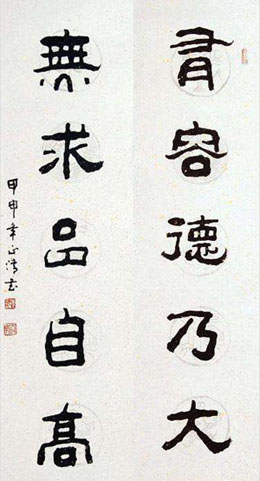 有容德乃大
無求品自高
甲申年正